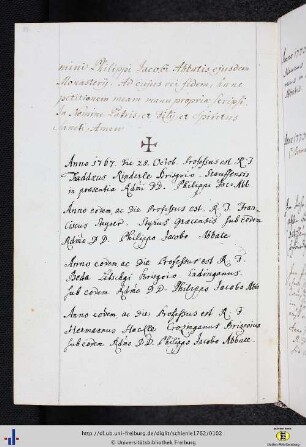 mini Philippi Jacobi Abbatis ejusdem
Monasterij. Ad cujus rei fidem, hanc
petitionem meam manu propria scripsi.
In Nomine Patris et Filij et Spiritus
Sancti. Amen
Anno 1767. die 28. Octob. Professus est R. F.
Thaddæus Rinderle Brisgoio Stauffensis
in præsentia Rdmi DD. Philippi Jac. Abb
Anno eodem ac die Professus est R. F. Fran
ciscus Styrus Graecensis sub eodem
Rdmo D D. Philippo Jacobo Abbate.
Anno eodem ac die Professus est R. F.
Beda Brisgoio Endinganus.
sub eodem Rdmo D D. Philippo Jacobo Abb
Anno eodem ac die Professus est R. F.
Hermannus Brisgoius
sub eodem Rdmo D D. Philippo Jacobo Abbate.
http://dl.ub.uni-freiburg.de/diglit/schienle1762/0102
© Universitätsbibliothek Freiburg